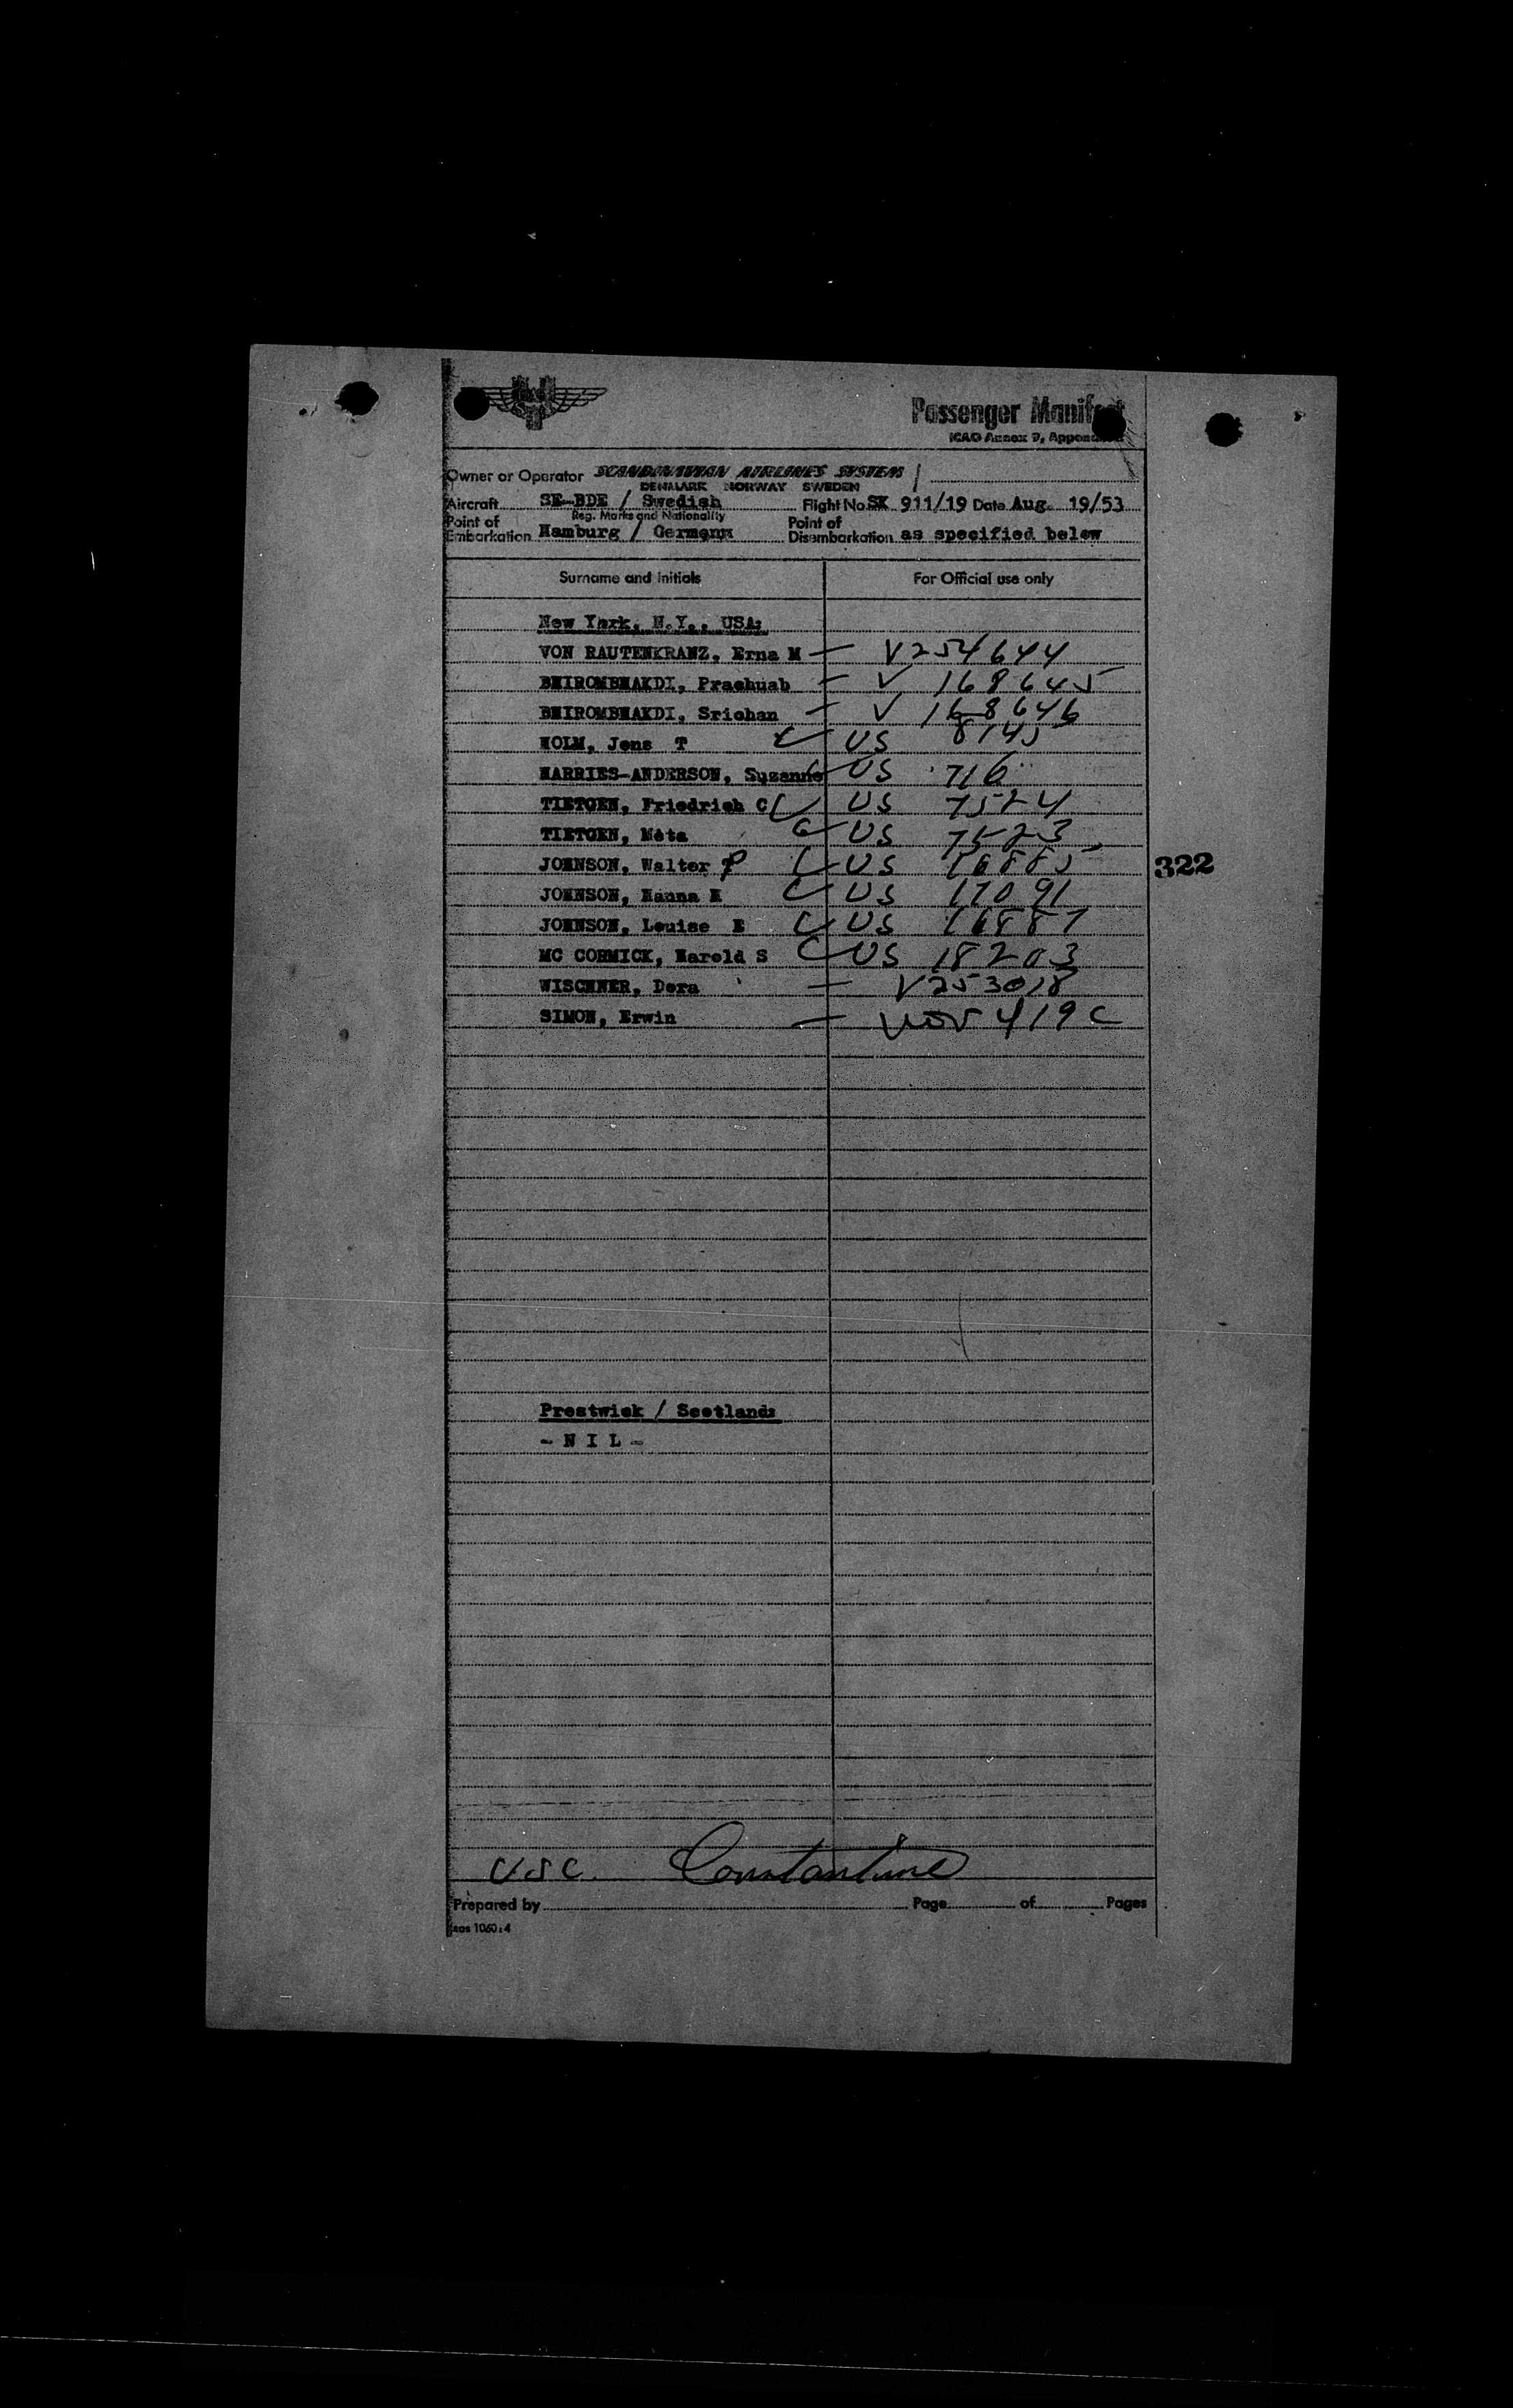 Passenger Manifest
ICAO Annex 9, Appendix
Owner or Operator SCANDINAVIAN AIRLINES SYSTEM
DENMARK NORWAY SWEDEN
Aircraft SE-BDE / Swedish Flight No. SK 911/19 Date Aug. 19/53
Reg. Marks and Nationality
Point of Embarkation Hamburg / Germany Point of Disembarkation as specified below
Surname and Initials For Official use only
New York, N.Y., USA:
VON RAUTENKRANZ, Erna M — V254644
BHIROMBHAKDI, Prachuab — V 168645
BHIROMBHAKDI, Srichan — V 168646
HOLM, Jens T US 8145
HARRIES-ANDERSON, Suzanne US 716
TIETGEN, Friedrich C US 7524
TIETGEN, Meta US 7523
JOHNSON, Walter P US 16885
322
JOHNSON, Hanna H US 17091
JOHNSON, Louise E US 16887
MC CORMICK, Harold S US 18203
WISCHNER, Dora — V253018
SIMON, Erwin — 419 C
Prestwick / Scotland:
- N I L -
USC. Constantine
Prepared by Page of Pages
sas 1060:4